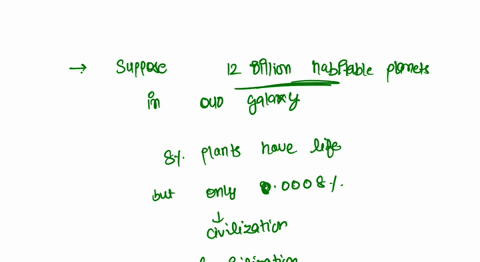 → Suppose 12 Billion habitable planets
in our galaxy
8% plants have life
but only 0.0008%.
↓
civilization